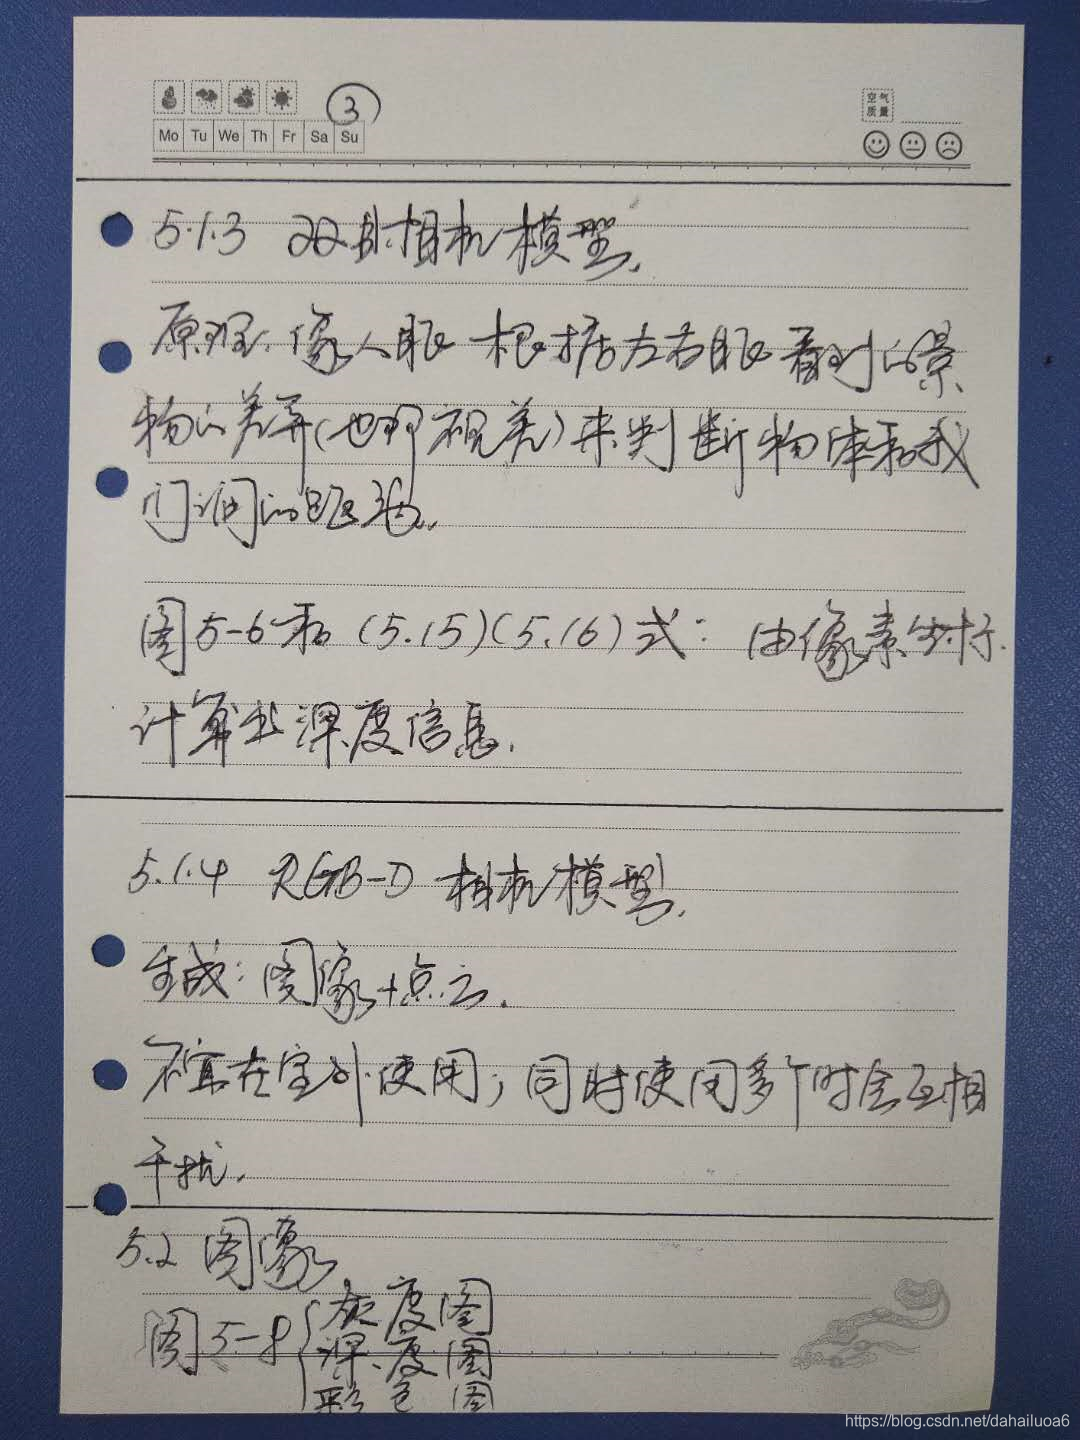 3
空气
质量
Mo Tu We Th Fr Sa Su
5.1.3 双目相机模型.
原理:像人眼一根据左右眼看到的景
物的差异(也即视差)来判断物体和我
们间的距离.
图5-6和(5.15)(5.16)式: 由像素坐标
计算出深度信息.
5.1.4 RGB-D 相机模型.
生成:图像+点云.
不宜在室外使用;同时使用多个时会互相
干扰.
5.2 图像
图5-8{灰度图
深度图
彩色图
https://blog.csdn.net/dahailuoa6